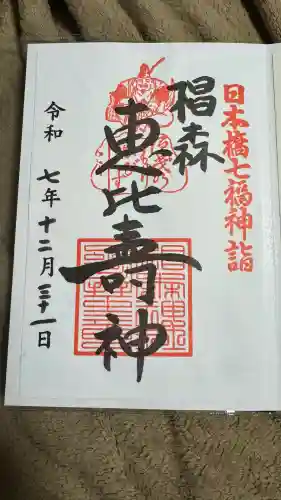 日本橋七福神詣
椙森
恵比寿神
令和七年十二月三十一日